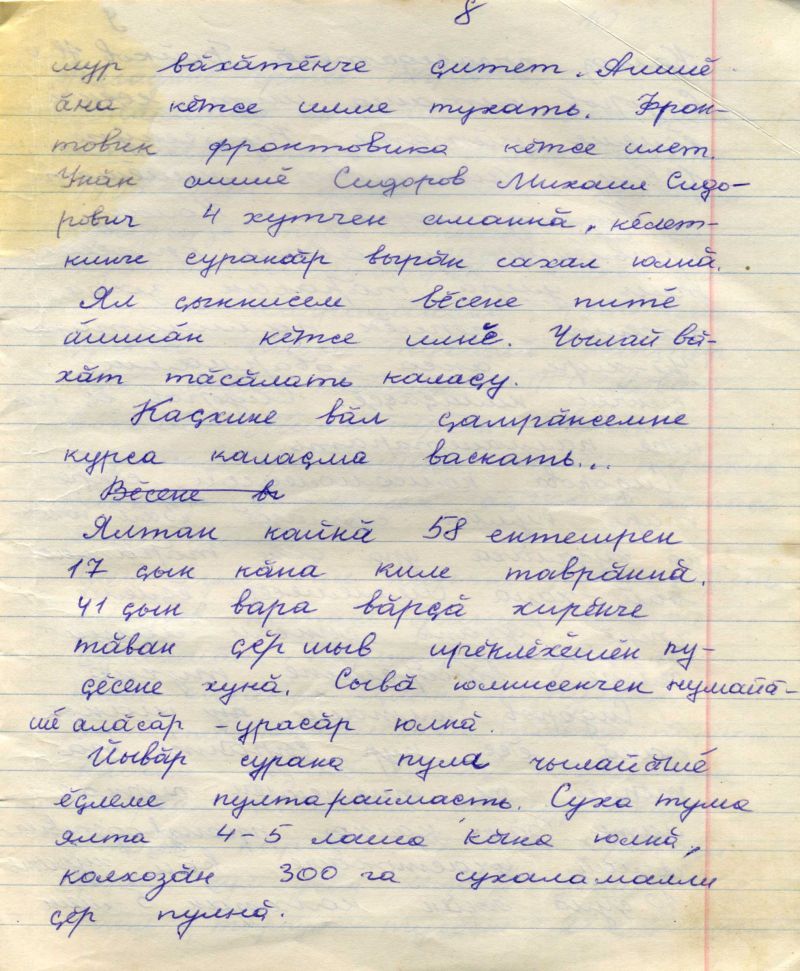 8
мур вӑхӑтӗнче ҫитет. Ашшӗ
ӑна кӗтсе илме тухать. Фрон-
товик фронтовика кӗтсе илет.
Унӑн ашшӗ Сидоров Михаил Сидо-
рович 4 хутчен аманнӑ, кӗлет-
кинче сурансӑр вырӑн сахал юлнӑ.
Ял ҫыннисем вӗсене питӗ
ӑшшӑн кӗтсе илнӗ. Чылай вӑ-
хӑт тӑсӑлать калаҫу.
Каҫхине вӑл ҫамрӑксемпе
курса калаҫма васкать...
Вӗсене в
Ялтан кайнӑ 58 ентешрен
17 ҫын кӑна киле таврӑннӑ.
41 ҫын вара вӑрҫӑ хирӗнче
тӑван ҫӗршыв ирӗклӗхӗшӗн пу-
ҫӗсене хунӑ. Сывӑ юлнисенчен нумайӑ-
шӗ алӑсӑр - урасӑр юлнӑ.
Йывӑр сурана пула чылайӑшӗ
ӗҫлеме пултараймасть. Суха тума
ялта 4-5 лаша кӑна юлнӑ,
колхозӑн 300 га сухаламалли
ҫӗр пулнӑ.